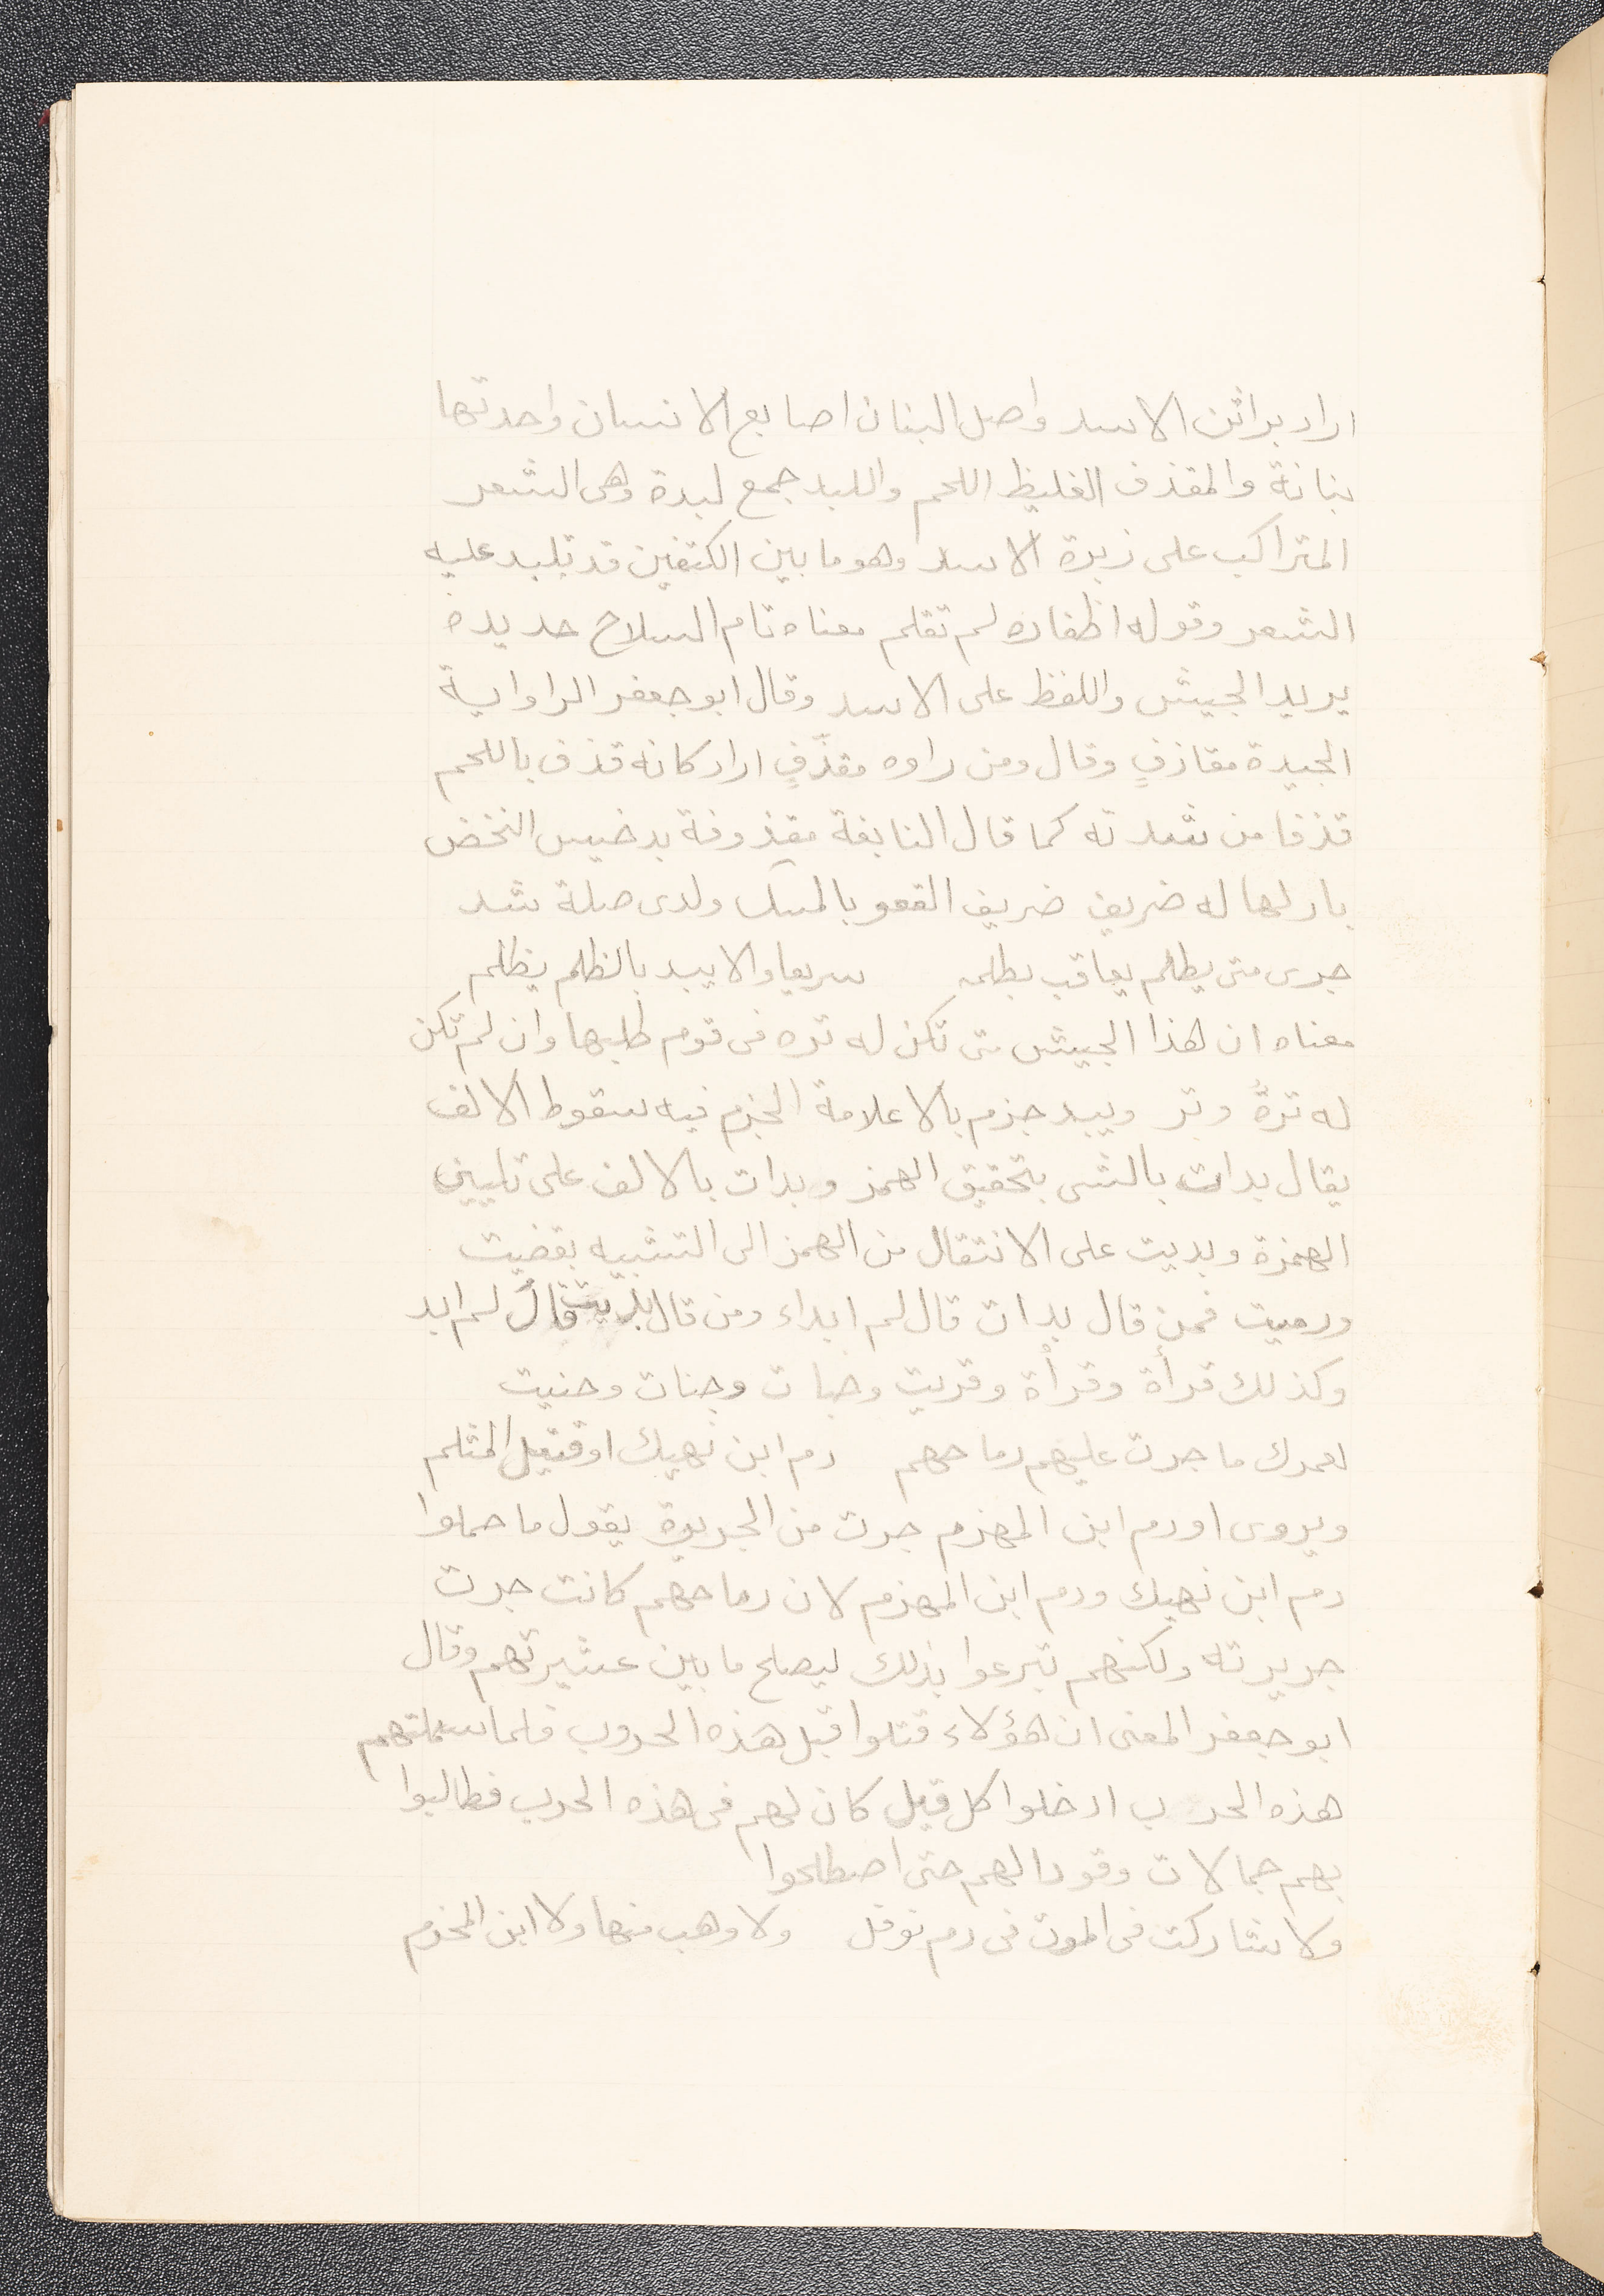 اراد براثن الاسد واصل البنان اصابع الانسان واحدتها
بنانة والمقذف الغليظ اللحم واللبد جمع لبدة وهى الشعر
المتراكب على زبرة الاسد وهو ما بين الكتفين قد تلبد عليه
الشعر وقوله اظفاره لم تقلم معناه تام السلاح حديده
يريد الجيش واللفظ على الاسد وقال ابو جعفر الراواية
الجيدة مقاذفٍ وقال ومن راوه مقذّفٍ اراد كانه قذف باللحم
قذفا من شدته كما قال النابغة مقذوفة بدخيس النخض
بازلها له ضريف ضريف القعو بالمسك ولدى صلة شد
جرى متى يطلم يعاقب بطلمه سريعا والا يبد بالظلم يظلم
معناه ان هذا الجيش متى تكن له تره فى قوم طلبها وان لم تكن
له ترةٌ وتر ويبد جزم بالا علامة الجزم فيه سقوط الالف
يقال بدات بالشى بتحقيق الهمز وبدات بالالف على تليين
الهمزة وبديت على الانتقال من الهمز الى التشبيه بقضيت
ورميت فمن قال بدات قال لم ابداء ومن قال بديت قال لم ابد
وكذلك قرأة وقرأْة وقريت وخبات وجنات وحنيت
لعمرك ما جرت عليهم رماحهم دم ابن نهيك او قتيل المثلم
ويروى او دم ابن المهزم جرت من الجريرة يقول ما حملوا
دم ابن نهيك ودم ابن المهزم لان رماحهم كانت جرت
جريرته ولكنهم تبرعوا بذلك ليصلح ما بين عشيرتهم وقال
ابو جعفر المعنى ان هؤلاء قتلوا قبل هذه الحروب فلما سملتهم
هذه الحرب ادخلوا كل قيل كان لهم فى هذه الحرب فطالبوا
بهم جمالات وقودا لهم حتى اصطلحوا
ولا شاركت فى الموت فى دم نوفل ولا وهب منها ولا ابن المخزم